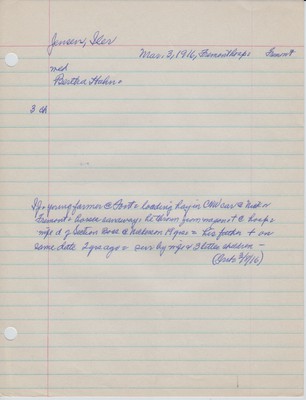 Jensen, Iler
Mar. 3, 1916, Fremont hosp Fremont
md
Bertha Hahn
3 ch
young farmer @ loading hay in CNW car @
Fremont horses runaway & thrown from @ hosp
wife d of Section Boss @ Nickerson 19 yrs his father on
same date 2 yrs ago surv by wife & 3 little children -